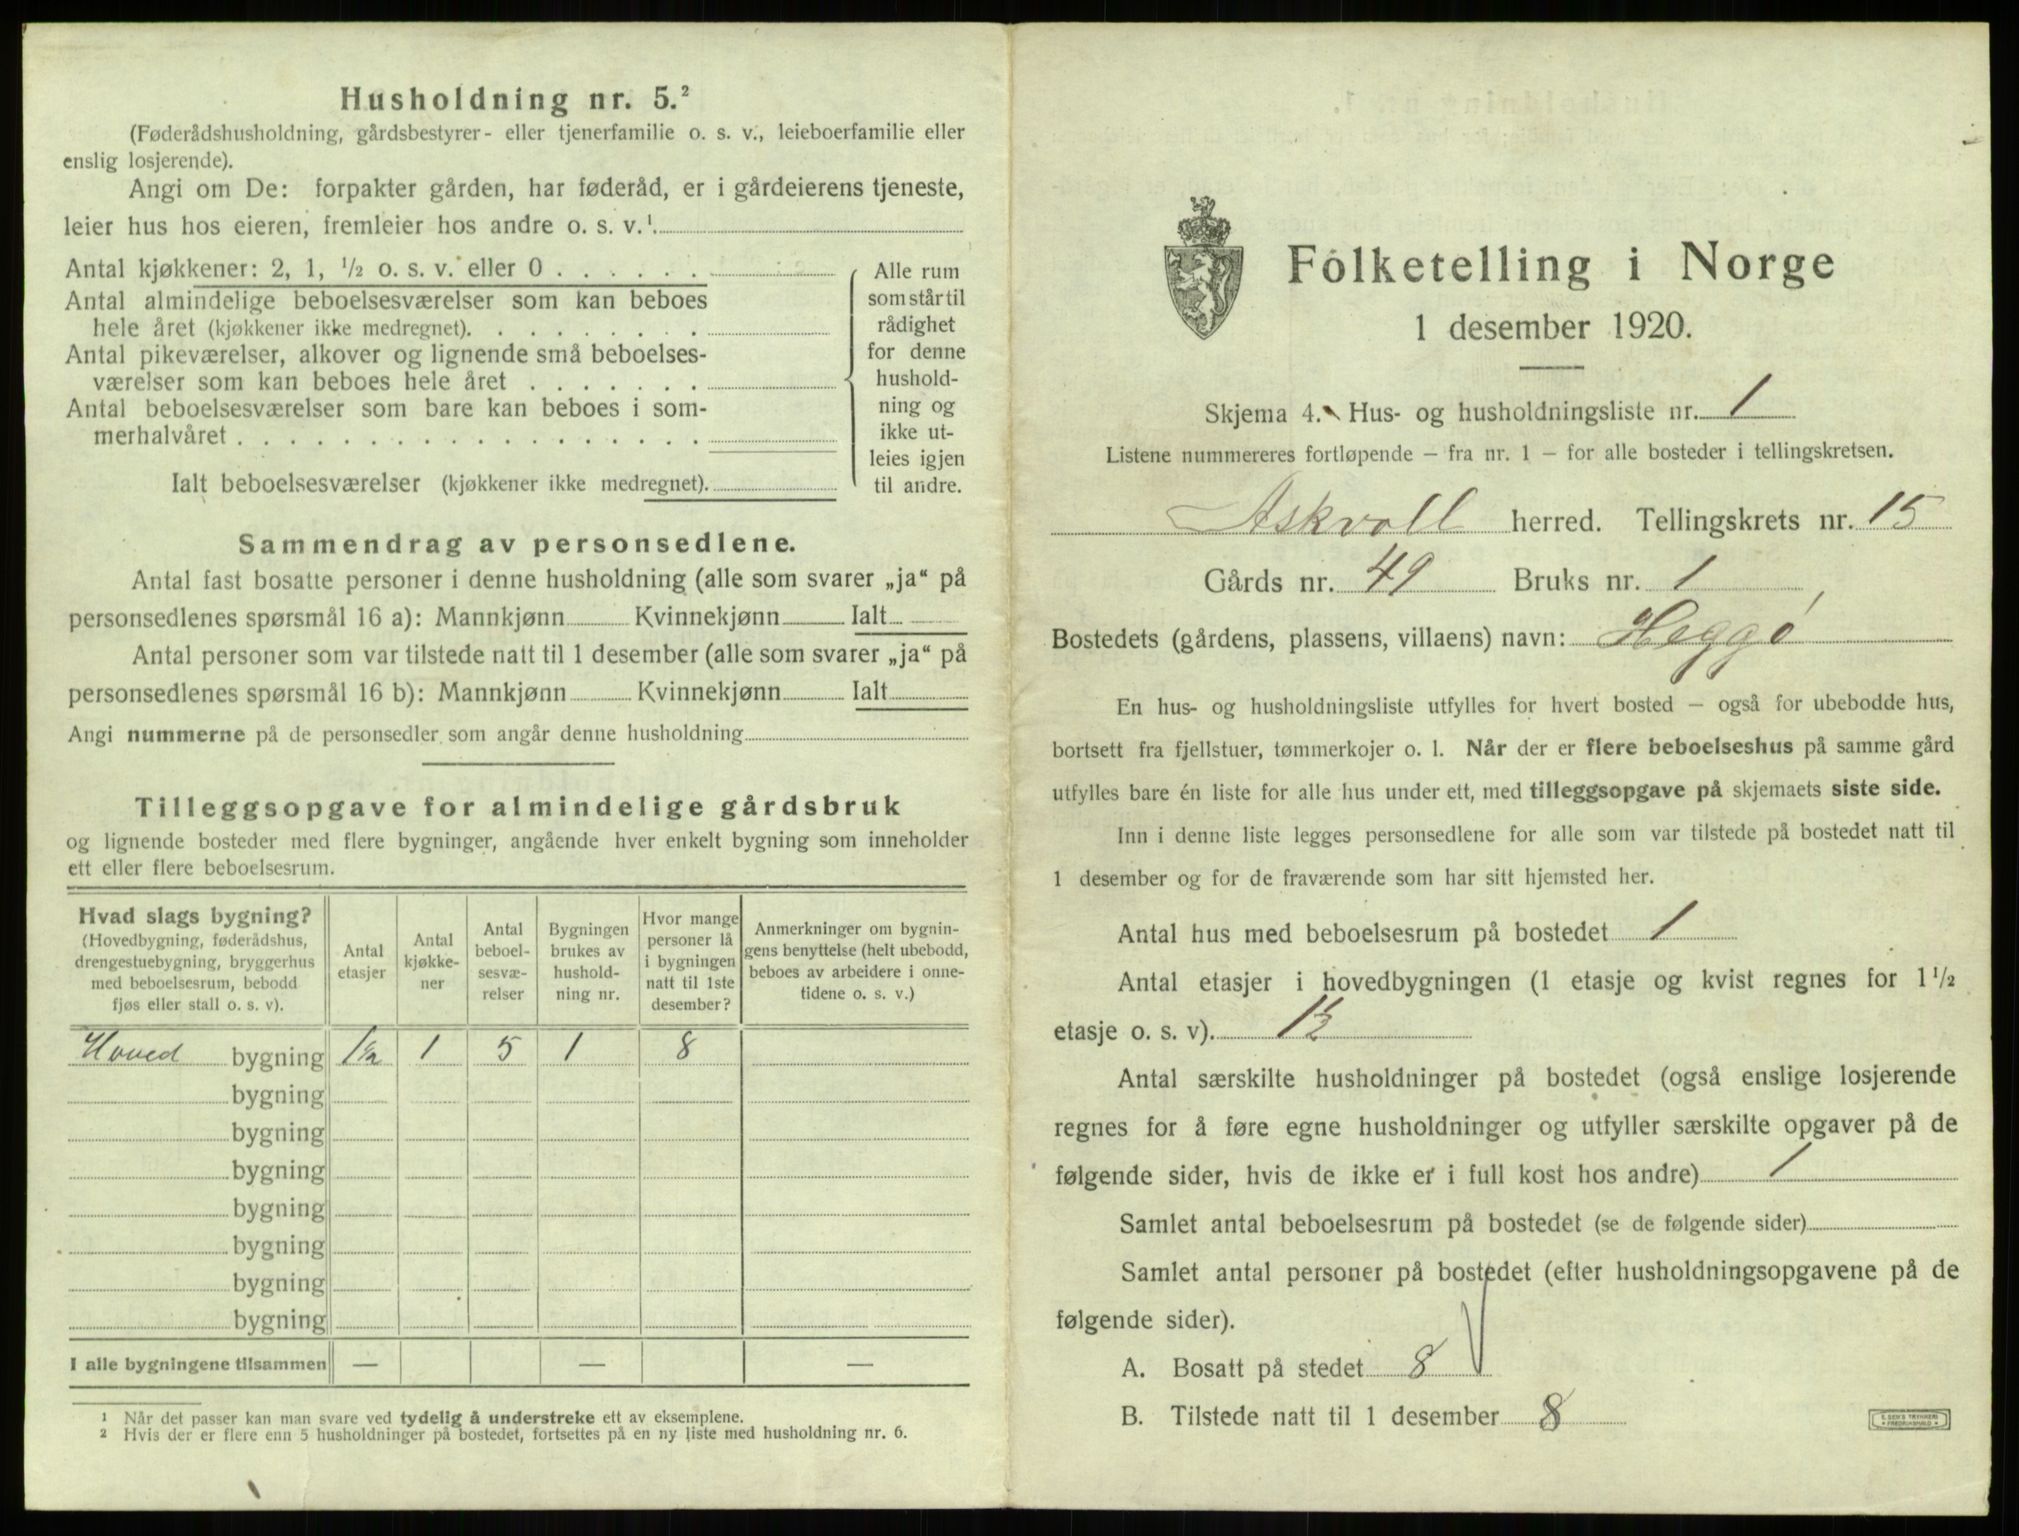 Husholdning nr. 5.²
(Føderådshusholdning, gårdsbestyrer- eller tjenerfamilie o. s. v., leieboerfamilie eller
enslig losjerende).
Angi om De: forpakter gården, har føderåd, er i gårdeierens tjeneste,
leier hus hos eieren, fremleier hos andre o. s. v.¹
Antal kjøkkener: 2, 1, ½ o. s. v. eller 0 . . . . . .
Antal almindelige beboelsesværelser som kan beboes
hele året (kjøkkener ikke medregnet). . . . . . . . .
Antal pikeværelser, alkover og lignende små beboelses-
værelser som kan beboes hele året . . . . . . .
Antal beboelsesværelser som bare kan beboes i som-
merhalvåret . . . . . . . . . . . . . . . . . .
Ialt beboelsesværelser (kjøkkener ikke medregnet).
Alle rum
som står til
rådighet
for denne
hushold-
ning og
ikke ut-
leies igjen
til andre.
Sammendrag av personsedlene.
Antal fast bosatte personer i denne husholdning (alle som svarer „ja“ på
personsedlenes spørsmål 16 a): Mannkjønn Kvinnekjønn Ialt
Antal personer som var tilstede natt til 1 desember (alle som svarer „ja“ på
personsedlenes spørsmål 16 b): Mannkjønn Kvinnekjønn Ialt
Angi nummerne på de personsedler som angår denne husholdning
Tilleggsopgave for almindelige gårdsbruk
og lignende bosteder med flere bygninger, angående hver enkelt bygning som inneholder
ett eller flere beboelsesrum.
Hvad slags bygning?
(Hovedbygning, føderådshus,
drengestuebygning, bryggerhus
med beboelsesrum, bebodd
fjøs eller stall o. s. v).
Antal
etasjer
Antal
kjøkke-
ner
Antal
beboel-
sesvæ-
relser
Bygningen
brukes av
hushold-
ning nr.
Hvor mange
personer lå
i bygningen
natt til 1ste
desember?
Anmerkninger om bygnin-
gens benyttelse (helt ubebodd,
beboes av arbeidere i onne-
tidene o. s. v.)
Hoved bygning 1½ 1 5 1 8
bygning
bygning
bygning
bygning
bygning
bygning
bygning
I alle bygningene tilsammen — — —
¹ Når det passer kan man svare ved tydelig å understreke ett av eksemplene.
² Hvis der er flere enn 5 husholdninger på bostedet, fortsettes på en ny liste med husholdning nr. 6.
Folketelling i Norge
1 desember 1920.
Skjema 4. Hus- og husholdningsliste nr. 1
Listene nummereres fortløpende – fra nr. 1 – for alle bosteder i tellingskretsen.
Askvoll herred. Tellingskrets nr. 15
Gårds nr. 49 Bruks nr. 1
Bostedets (gårdens, plassens, villaens) navn: Heggø
En hus- og husholdningsliste utfylles for hvert bosted – også for ubebodde hus,
bortsett fra fjellstuer, tømmerkojer o. l. Når der er flere beboelseshus på samme gård
utfylles bare én liste for alle hus under ett, med tilleggsopgave på skjemaets siste side.
Inn i denne liste legges personsedlene for alle som var tilstede på bostedet natt til
1 desember og for de fraværende som har sitt hjemsted her.
Antal hus med beboelsesrum på bostedet 1
Antal etasjer i hovedbygningen (1 etasje og kvist regnes for 1½
etasje o. s. v). 1½
Antal særskilte husholdninger på bostedet (også enslige losjerende
regnes for å føre egne husholdninger og utfyller særskilte opgaver på de
følgende sider, hvis de ikke er i full kost hos andre) 1
Samlet antal beboelsesrum på bostedet (se de følgende sider)
Samlet antal personer på bostedet (efter husholdningsopgavene på de
følgende sider).
A. Bosatt på stedet 8
B. Tilstede natt til 1 desember 8